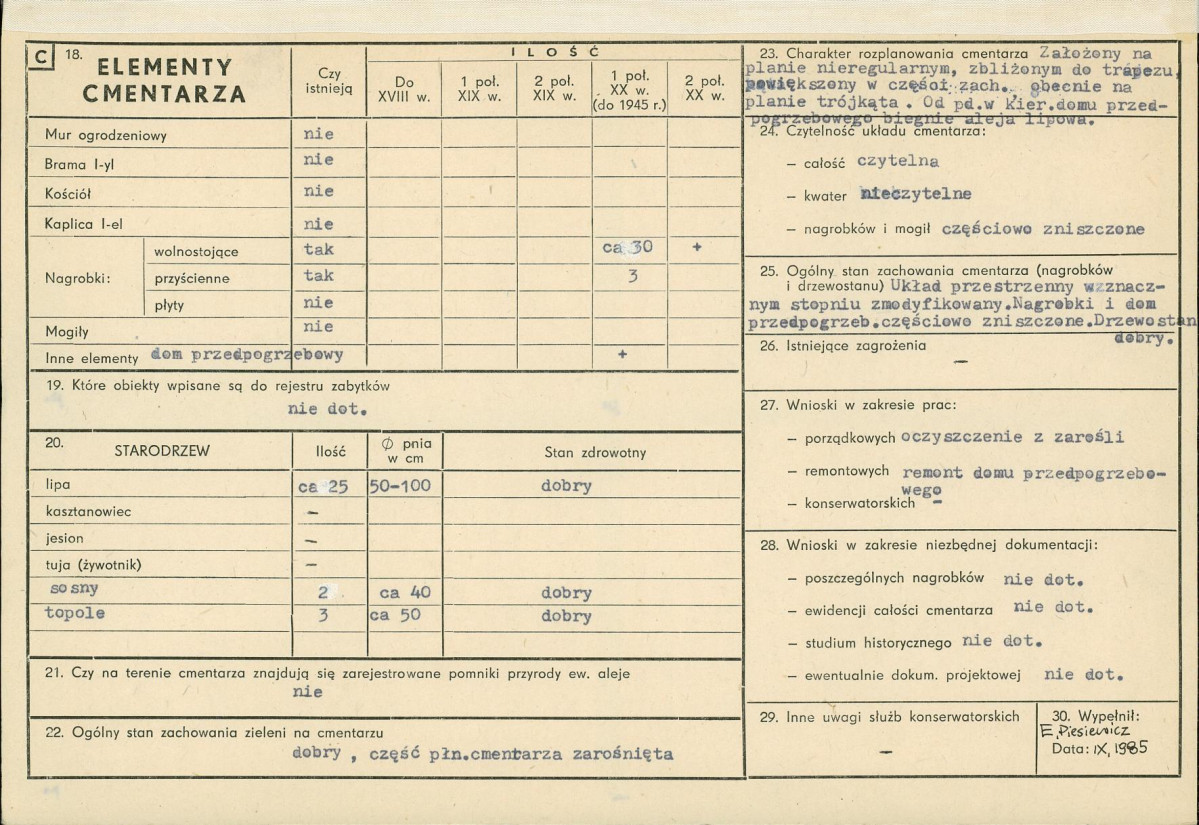 C 18. ELEMENTY CMENTARZA
Czy istnieją
ILOŚĆ
Do XVIII w.
1 poł. XIX w.
2 poł. XIX w.
1 poł. XX w. (do 1945 r.)
2 poł. XX w.
Mur ogrodzeniowy nie
Brama I-yl nie
Kościół nie
Kaplica I-el nie
Nagrobki: wolnostojące tak ca 30 +
przyścienne tak 3
płyty nie
Mogiły nie
Inne elementy dom przedpogrzebowy +
19. Które obiekty wpisane są do rejestru zabytków
nie dot.
20. STARODRZEW Ilość Ø pnia w cm Stan zdrowotny
lipa ca 25 50-100 dobry
kasztanowiec –
jesion –
tuja (żywotnik) –
sosny 2 ca 40 dobry
topole 3 ca 50 dobry
21. Czy na terenie cmentarza znajdują się zarejestrowane pomniki przyrody ew. aleje
nie
22. Ogólny stan zachowania zieleni na cmentarzu
dobry , część płn.cmentarza zarośnięta
23. Charakter rozplanowania cmentarza Założony na
planie nieregularnym, zbliżonym do trapezu,
powiększony w części zach., obecnie na
planie trójkąta . Od pd.w kier.domu przed-
pogrzebowego biegnie aleja lipowa.
24. Czytelność układu cmentarza:
– całość czytelna
– kwater nieczytelne
– nagrobków i mogił częściowo zniszczone
25. Ogólny stan zachowania cmentarza (nagrobków
i drzewostanu) Układ przestrzenny w znacz-
nym stopniu zmodyfikowany.Nagrobki i dom
przedpogrzeb.częściowo zniszczone.Drzewostan
dobry.
26. Istniejące zagrożenia
–
27. Wnioski w zakresie prac:
– porządkowych oczyszczenie z zarośli
– remontowych remont domu przedpogrzebo-
wego
– konserwatorskich –
28. Wnioski w zakresie niezbędnej dokumentacji:
– poszczególnych nagrobków nie dot.
– ewidencji całości cmentarza nie dot.
– studium historycznego nie dot.
– ewentualnie dokum. projektowej nie dot.
29. Inne uwagi służb konserwatorskich
–
30. Wypełnił:
E. Piesiewicz
Data: IX, 1985